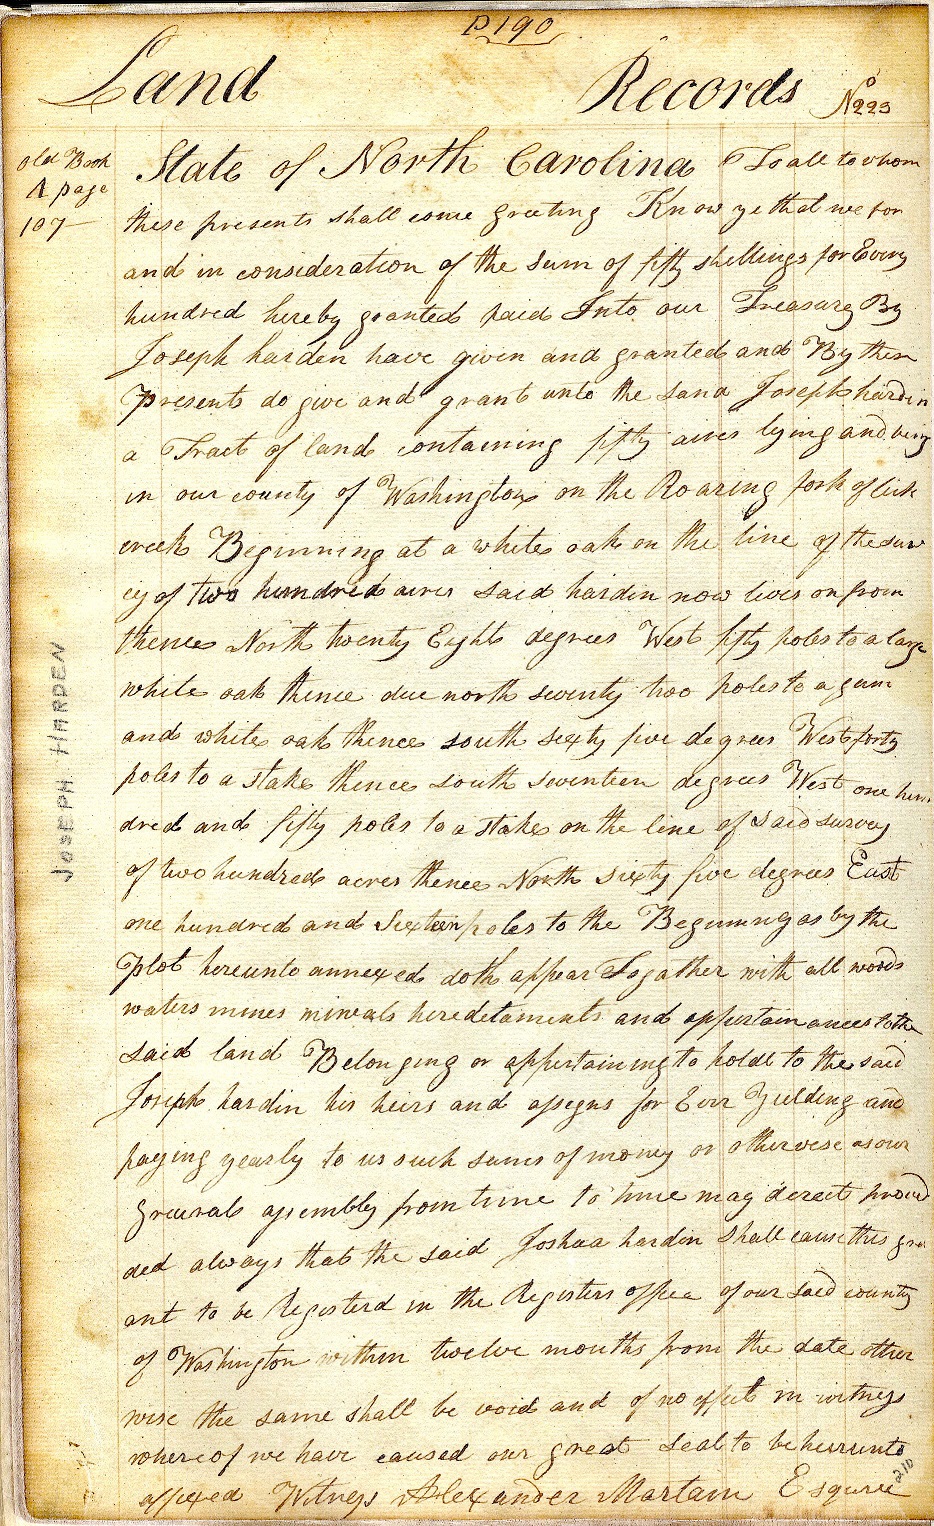 P 190
Land Records No 223
Old Book
A page
107
State of North Carolina To all to whom
these presents shall come greeting Know ye that we for
and in consideration of the sum of fifty shellings for Every
hundred hereby granted paid Into our Treasury By
Joseph harden have given and granted and By these
Presents do give and grant unto the said Joseph hardin
a Tract of land containing fifty acres lying and being
in our county of Washington on the Roaring fork of lick
creek Beginning at a white oak on the line of the surv
ey of two hundred acres said hardin now lives on from
thence North twenty Eight degrees West fifty poles to a large
white oak thence due north seventy two poles to a gum
and white oak thence south sixty five degrees West forty
poles to a stake thence south seventeen degrees West one hun
dred and fifty poles to a stake on the line of said survey
of two hundred acres thence North sixty five degrees East
one hundred and Sixteen poles to the Beginning as by the
Plot hereunto annexed doth appear Togather with all woods
waters mines minerals heredetaments and appertainances to the
said land Belonging or appertaining to hold to the said
Joseph hardin his heirs and assegns for Ever Yeilding and
paying yearly to us such sums of money or otherwise as our
general assembly from time to time may derect provid
ded always that the said Joshua hardin shall cause this gra
ant to be Registerd in the Registers office of our said county
of Washington within twelve months from the date other
wise the same shall be void and of no effect in witness
whereof we have caused our great seal to be hereunto
affixed Witness Alexander Martain Esquire
JOSEPH HARDEN
210